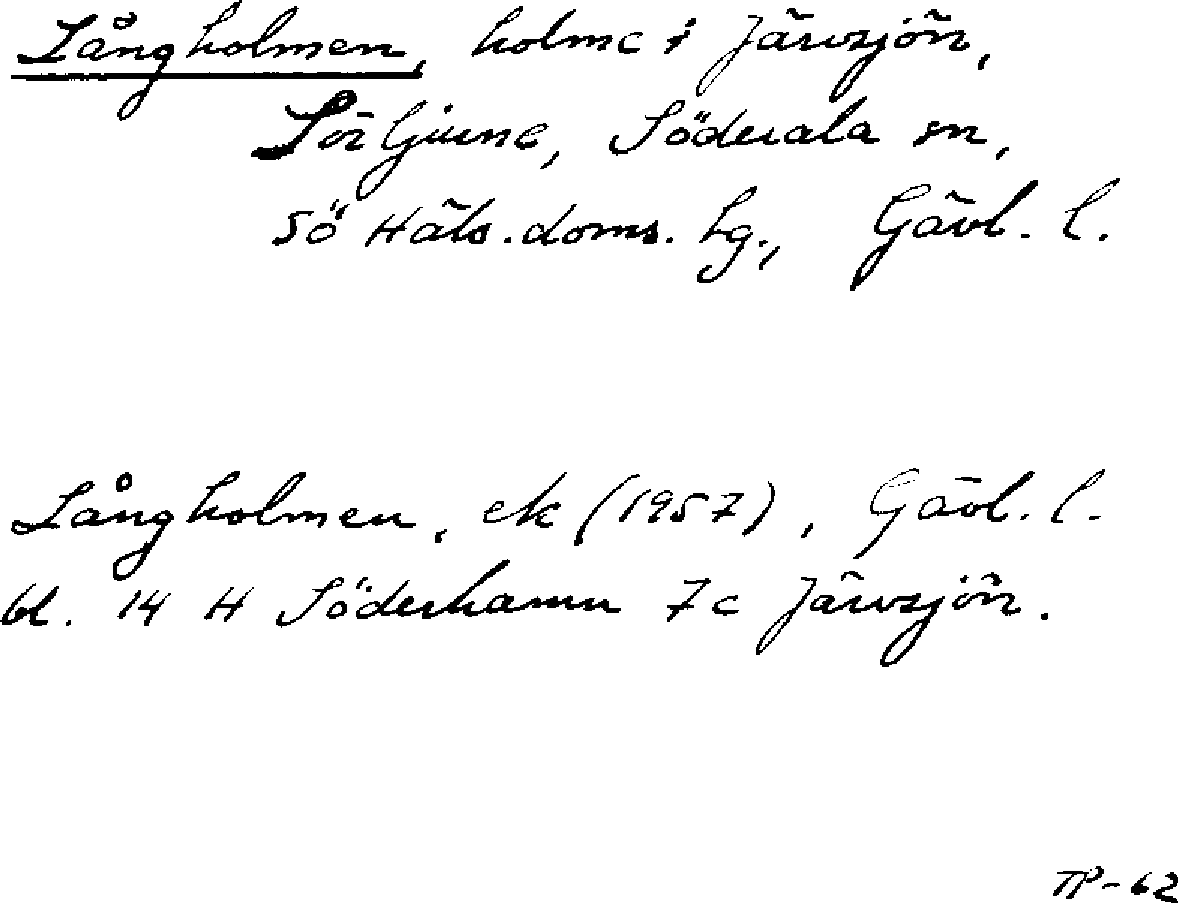 Långholmen, holme i Järvsjön,
Sörljusne, Söderala sn,
Sö Häls. doms. hg., Gävl. l.
Långholmen, ek (1957), Gävl. l.
bl. 14 H Söderhamn 7c Järvsjön.
TP-62